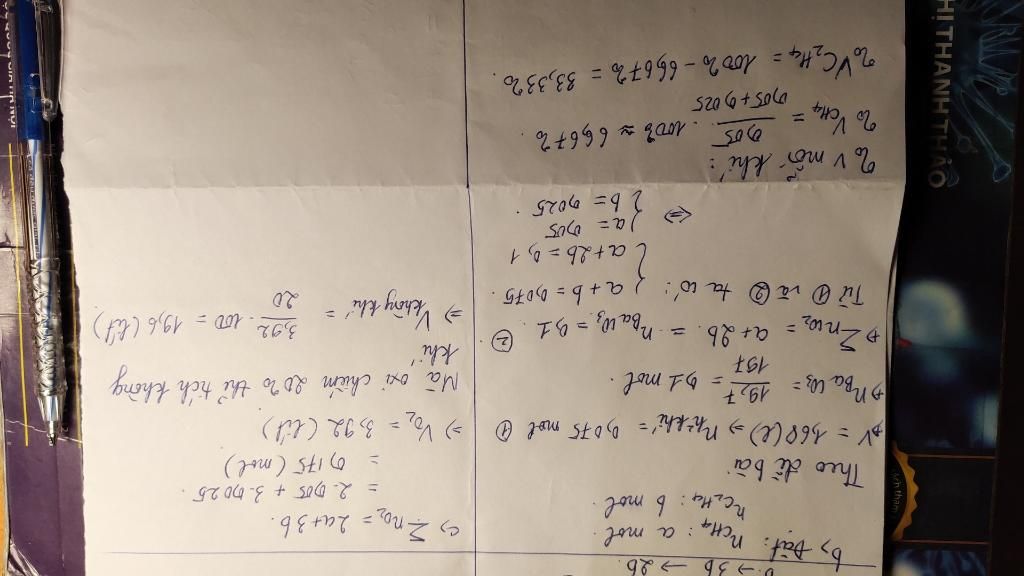 b → 3b → 2b.
b, Đặt: nCH4: a mol
nC2H4: b mol.
Theo đề bài
V = 1,68 (l) ⇒ n hỗn khí = 0,075 mol ①
⇒ nBaCO3 = 19,7 / 197 = 0,1 mol.
⇒ ΣnCO2 = a + 2b = nBaCO3 = 0,1 ②
Từ ① và ② ta có: { a + b = 0,075
{ a + 2b = 0,1
⇔ { a = 0,05
{ b = 0,025
% V mỗi khí:
% VCH4 = 0,05 / 0,05 + 0,025 . 100% ≈ 66,67%
% VC2H4 = 100% - 66,67% = 33,33%.
c, ΣnO2 = 2a + 3b.
= 2.0,05 + 3.0,025.
= 0,175 (mol)
⇒ VO2 = 3,92 (lít)
Mà oxi chiếm 20% thể tích không
khí
⇒ Vkhông khí = 3,92 / 20 . 100 = 19,6 (lít).
HỊ THANH THẢO